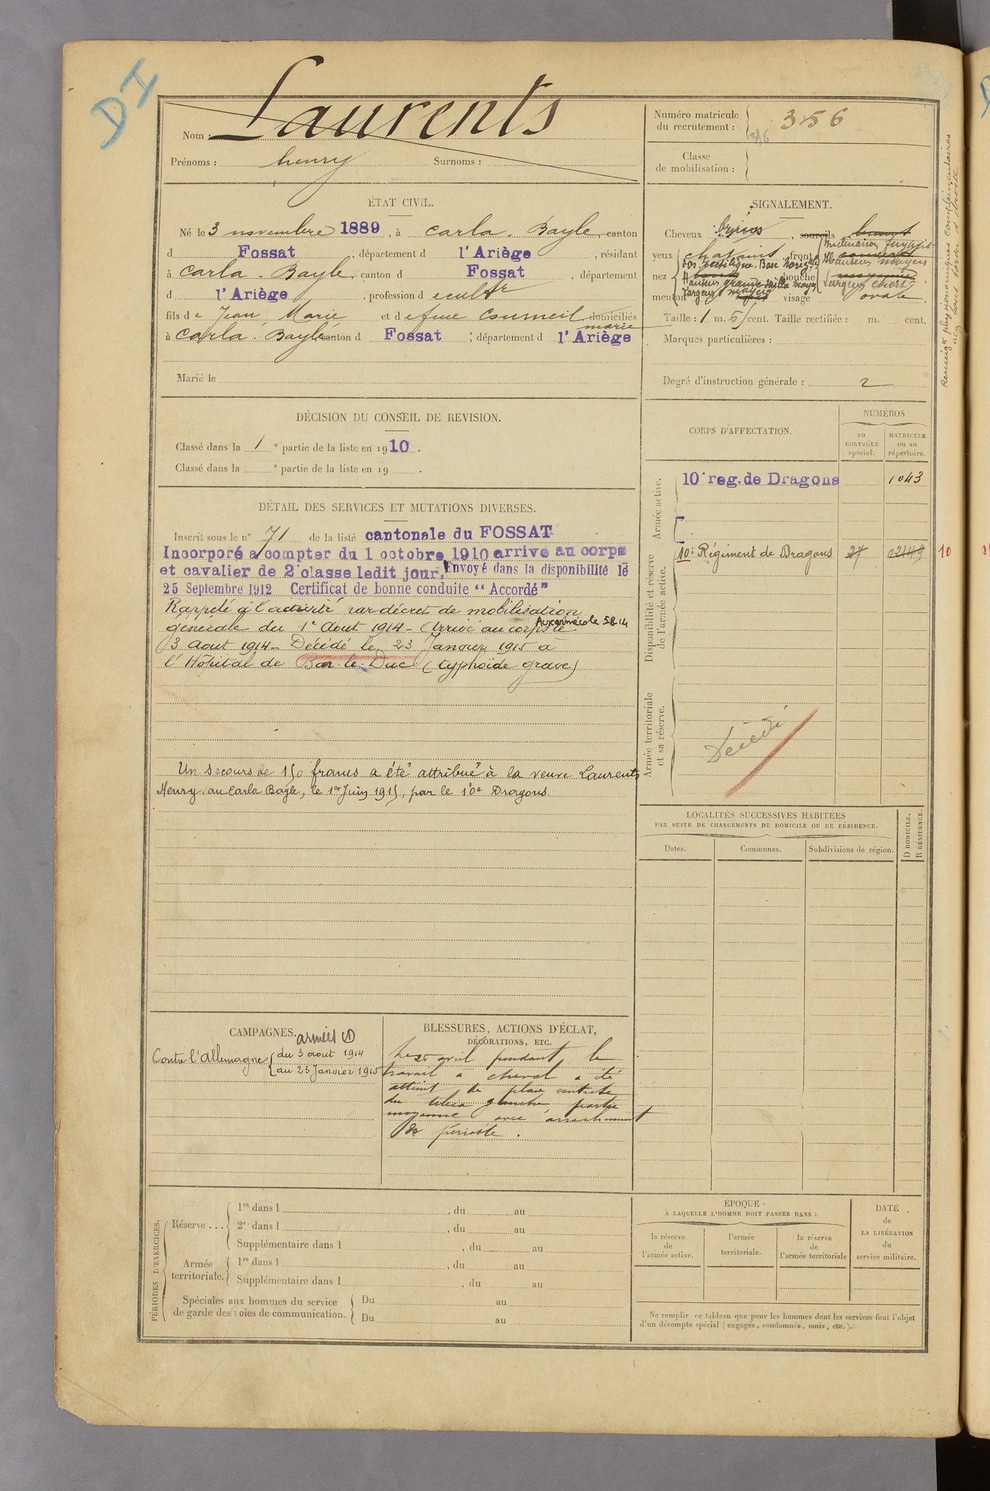 DI
Nom : Laurents
Prénoms : henry Surnoms :
Numéro matricule du recrutement : 356
Classe de mobilisation :
ÉTAT CIVIL.
Né le 3 novembre 1889, à Carla-Bayle, canton
d Fossat, département d l'Ariège, résidant
à Carla-Bayle, canton d Fossat, département
d l'Ariège, profession d cultr
fils de Jean Marie et de feue Coumeil domiciliés
marie
à Carla-Bayle canton d Fossat, département d l'Ariège
Marié le
SIGNALEMENT.
Cheveux sourcils
yeux chatains front Inclinaison fuyante
Hauteur moyenne
nez Dos rectiligne. Base horizle bouche Largeur
Hauteur grande saillie moyenne
menton visage ovale
Taille : 1 m. cent. Taille rectifiée : m. cent.
Marques particulières :
Degré d'instruction générale : 2
Renseigts physionomiques complémentaires
DÉCISION DU CONSEIL DE REVISION.
Classé dans la 1e partie de la liste en 1910.
Classé dans la e partie de la liste en 19 .
CORPS D'AFFECTATION.
NUMÉROS
au CONTRÔLE spécial.
MATRICULE ou au répertoire.
Armée active.
10e reg. de Dragons 1043
Disponibilité et réserve de l'armée active.
10e Régiment de Dragons 10
Armée territoriale et sa réserve.
Décédé
DÉTAIL DES SERVICES ET MUTATIONS DIVERSES.
Inscrit sous le n° 71 de la liste cantonale du FOSSAT
Incorporé à compter du 1 octobre 1910 arrive au corps
et cavalier de 2e classe ledit jour. Envoyé dans la disponibilité le
25 Septembre 1912 Certificat de bonne conduite "Accordé"
Rappelé à l'activité par décret de mobilisation
générale du 1er Aout 1914 - Arrivé au corps le
Aux armées le 5.8.14
3 Aout 1914 - Décédé le 23 Janvier 1915 à
l'Hôpital de Bar-le-Duc (typhoïde grave)
Un secours de 150 francs a été attribué à la veuve Laurents
Henry, au Carla Bayle, le 1er Juin 1915, par le 10e Dragons.
LOCALITÉS SUCCESSIVES HABITÉES
PAR SUITE DE CHANGEMENTS DE DOMICILE OU DE RÉSIDENCE.
Dates. Communes. Subdivisions de région. D DOMICILE. R RÉSIDENCE.
CAMPAGNES.
armées
Contre l'Allemagne du 3 aout 1914
au 23 Janvier 1915
BLESSURES, ACTIONS D'ÉCLAT,
DÉCORATIONS, ETC.
Le 25 avril pendant le
travail à cheval a été
atteint de plaie contuse
du tibia gauche partie
moyenne avec arrachement
de périoste.
PÉRIODES D'EXERCICES.
Réserve ... 1re dans l , du au
2e dans l , du au
Supplémentaire dans l , du au
Armée territoriale. 1re dans l , du au
Supplémentaire dans l , du au
Spéciales aux hommes du service de garde des voies de communication. Du au
Du au
ÉPOQUE
À LAQUELLE L'HOMME DOIT PASSER DANS :
la réserve de l'armée active.
l'armée territoriale.
la réserve de l'armée territoriale
DATE de LA LIBÉRATION du service militaire.
Ne remplir ce tableau que pour les hommes dont les services font l'objet
d'un décompte spécial (engagés, condamnés, omis, etc.).